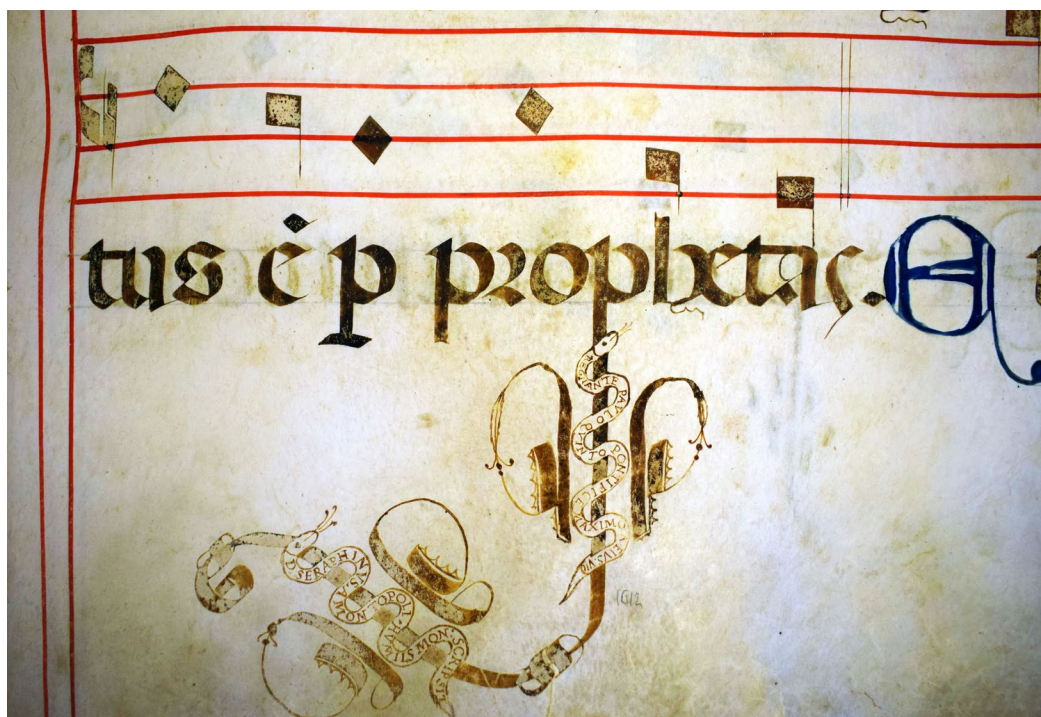 tus ē p prophetas. E
REGNANTE PAVLO QVINTO PONTIFICE MAXIMO
1612
D SERAPHINVS A MONTOPOLI · HVIVS MON · SCRIPSIT